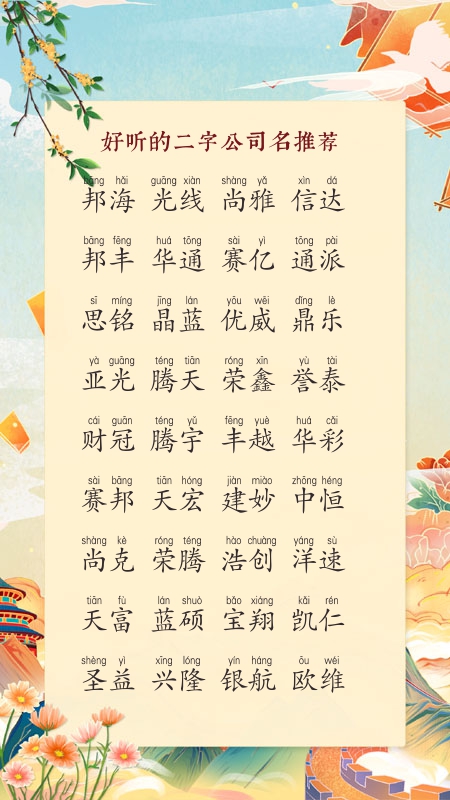 好听的二字公司名推荐
bāng hǎi guāng xiàn shàng yǎ xìn dá
邦海 光线 尚雅 信达
bāng fēng huá tōng sài yì tōng pài
邦丰 华通 赛亿 通派
sī míng jīng lán yōu wēi dǐng lè
思铭 晶蓝 优威 鼎乐
yà guāng téng tiān róng xīn yù tài
亚光 腾天 荣鑫 誉泰
cái guān téng yǔ fēng yuè huá cǎi
财冠 腾宇 丰越 华彩
sài bāng tiān hóng jiàn miào zhōng héng
赛邦 天宏 建妙 中恒
shàng kè róng téng hào chuàng yáng sù
尚克 荣腾 浩创 洋速
tiān fù lán shuò bǎo xiáng kǎi rén
天富 蓝硕 宝翔 凯仁
shèng yì xīng lóng yín háng ōu wéi
圣益 兴隆 银航 欧维